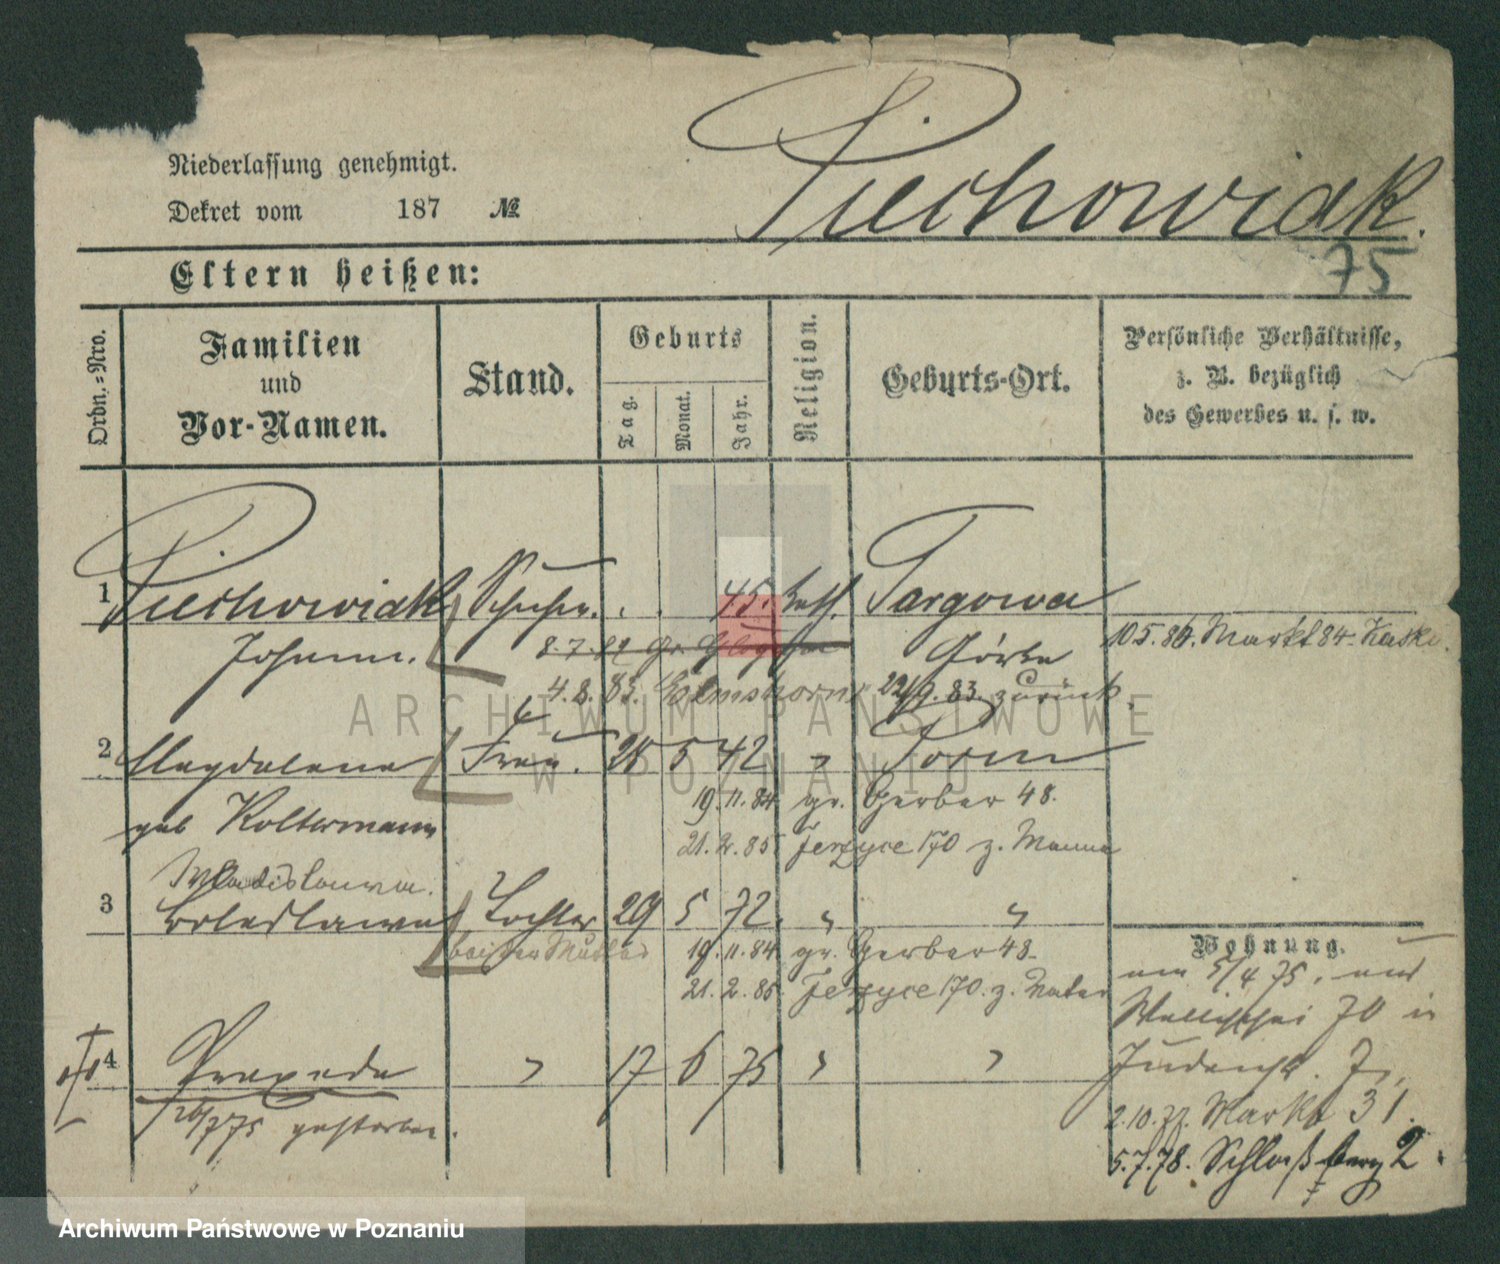 Piechowiak.
Niederlassung genehmigt.
Dekret vom 187 №
75
Eltern heißen:
Ordn.=Nro.
Familien und Vor-Namen.
Stand.
Geburts
Tag.
Monat.
Jahr.
Religion.
Geburts-Ort.
Persönliche Verhältnisse,
z. B. bezüglich
des Gewerbes u. s. w.
1 Piechowiak Schuhm. . . 45. kath. Targowa
Johann. 8.7.82 Gr. Glogau Górka 10.5.86. Markt 84
4.8.83. Elmshorn 22/9.83. zurück
2 Magdalena Frau. 28 5 42 " Posen
geb Koltermann 19.11.84 gr. Gerber 48.
21.2.85 Jerzyce 170 z. Manne
Wladislawa.
3 Boleslawa Tochter 29 5 72. " "
bei der Mutter 19.11.84 gr. Gerber 48.
21.2.85. Jerzyce 170. z. Vater
Wohnung.
am 5/4 75. aus
Wallischei 70 in
Judenst. 7,
4 Praxeda " 17 6 75 " "
26/7 75 gestorben.
2.10.77. Markt 31.
5.7.78. Schloßberg 2.
ARCHIWUM PAŃSTWOWE
W POZNANIU
Archiwum Państwowe w Poznaniu